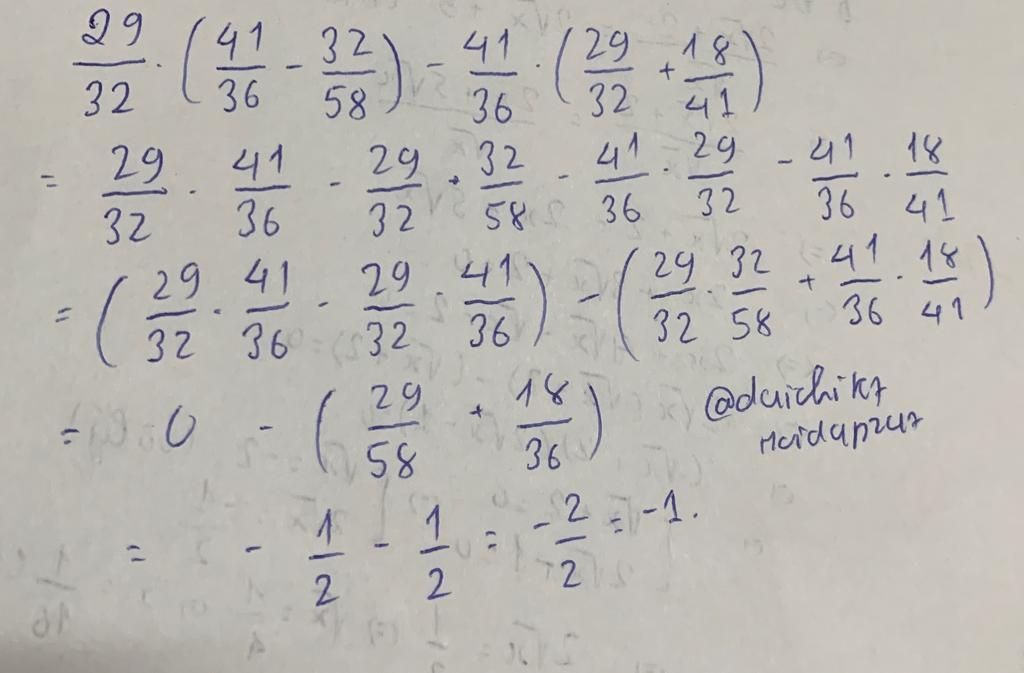 29/32 · (41/36 - 32/58) - 41/36 · (29/32 + 18/41)
= 29/32 · 41/36 - 29/32 · 32/58 - 41/36 · 29/32 - 41/36 · 18/41
= (29/32 · 41/36 - 29/32 · 41/36) - (29/32 · 32/58 + 41/36 · 18/41)
= 0 - (29/58 + 18/36)
= - 1/2 - 1/2 = -2/2 = -1.